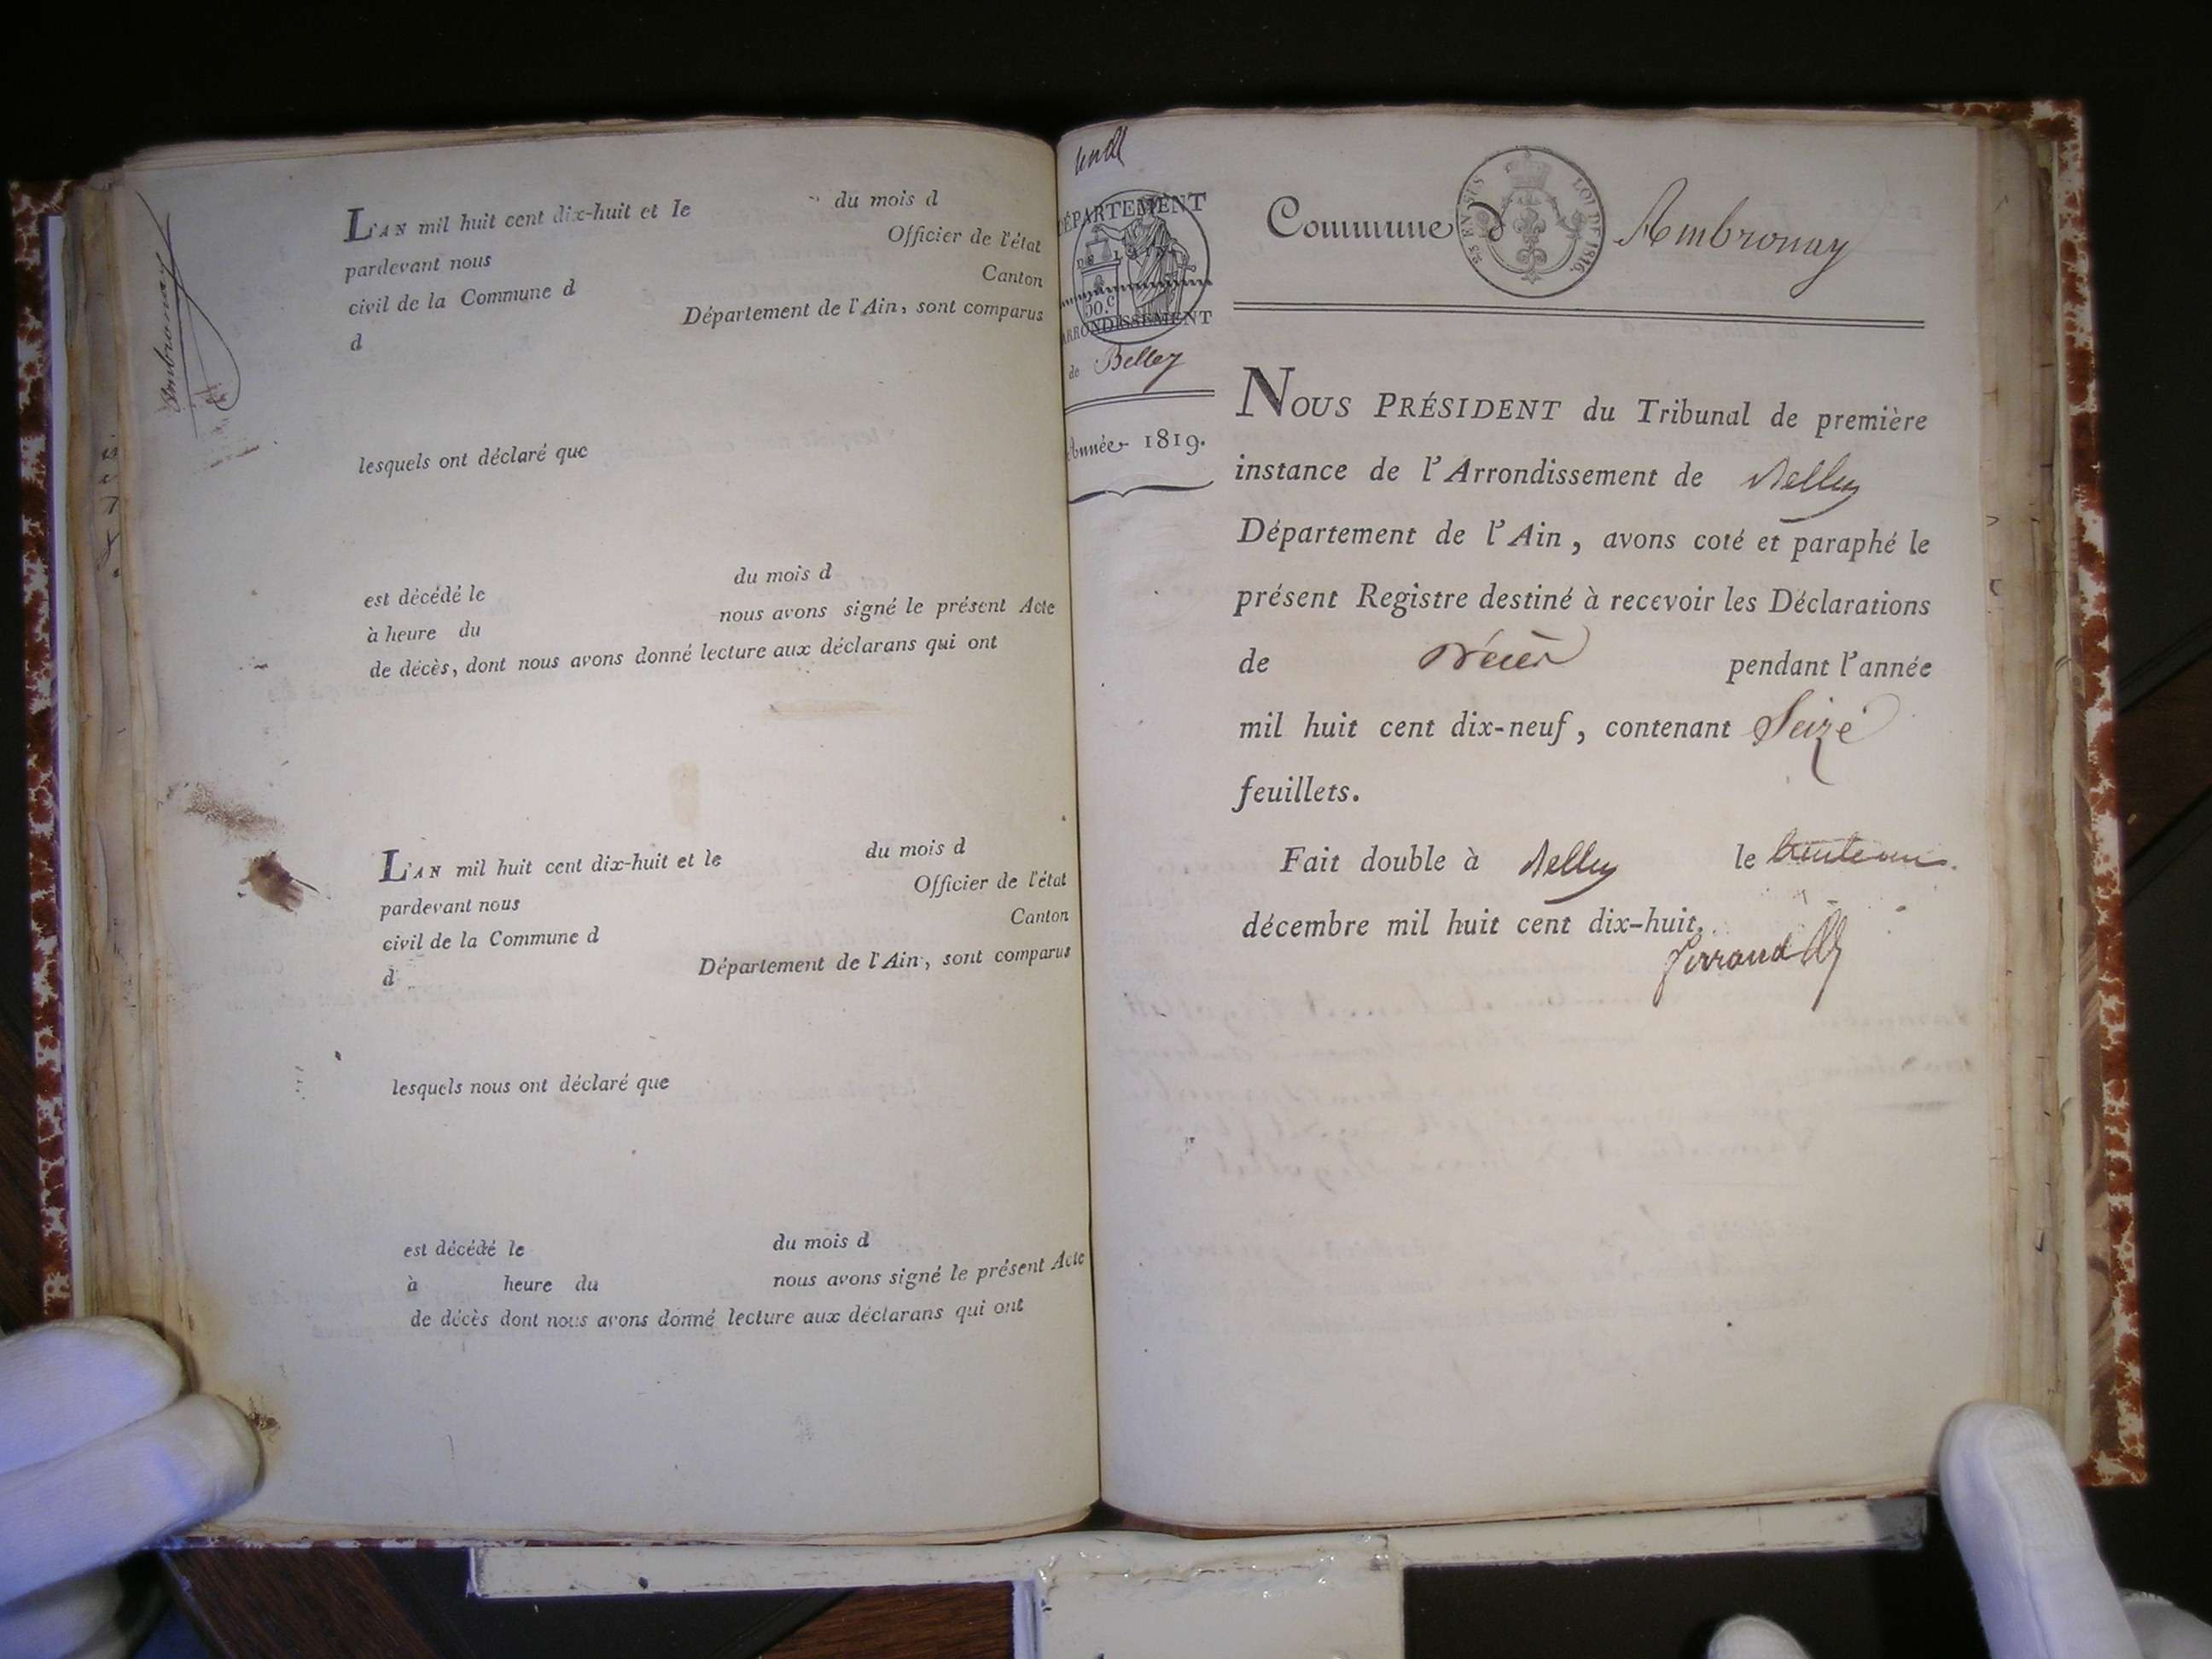 Ambronay
L'AN mil huit cent dix-huit et le du mois d
pardevant nous Officier de l'état
civil de la Commune d Canton
d Département de l'Ain, sont comparus
lesquels ont déclaré que
est décédé le du mois d
à heure du nous avons signé le présent Acte
de décès, dont nous avons donné lecture aux déclarans qui ont
L'AN mil huit cent dix-huit et le du mois d
pardevant nous Officier de l'état
civil de la Commune d Canton
d Département de l'Ain, sont comparus
lesquels nous ont déclaré que
est décédé le du mois d
à heure du nous avons signé le présent Acte
de décès dont nous avons donné lecture aux déclarans qui ont
DÉPARTEMENT
DE L'AIN
50.c
ARRONDISSEMENT
de Belley
Année 1819.
Commune d'Ambronay
LOI DE 1816.
NOUS PRÉSIDENT du Tribunal de première
instance de l'Arrondissement de Belley
Département de l'Ain, avons coté et paraphé le
présent Registre destiné à recevoir les Déclarations
de Décès pendant l'année
mil huit cent dix-neuf, contenant Seize
feuillets.
Fait double à Belley le trente un
décembre mil huit cent dix-huit.